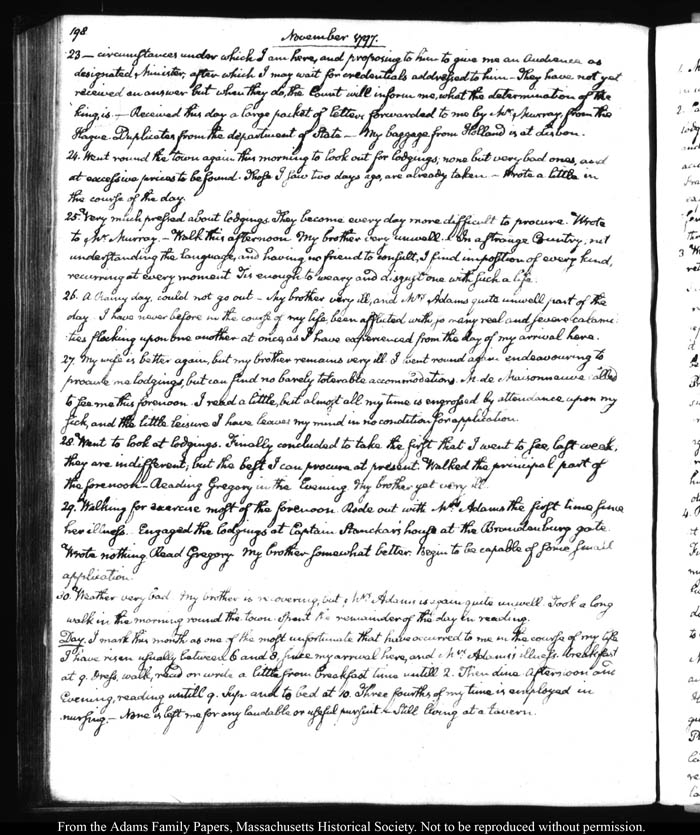 198
November 1797.
23 — circumstances under which I am here, and proposing to him to give me an Audience as
designated Minister, after which I may wait for credentials addressed to him — They have not yet
received an answer but when they do, the Count will inform me, what the determination of the
King is — Received this day a large packet of letters forwarded to me by Mr. Murray from the
Hague. Duplicates from the department of State — My baggage from Holland is at Lisbon.
24. Went round the town again this morning to look out for lodgings, none but very bad ones, and
at excessive prices to be found. Those I saw two days ago, are already taken — Wrote a little in
the course of the day.
25. Very much pressed about lodgings. They become every day more difficult to procure. Wrote
to Mr. Murray — Walk this afternoon My brother very unwell. In a strange Country, not
understanding the language, and having no friend to consult, I find imposition of every kind,
recurring at every moment Tis enough to weary and disgust one with such a life.
26. A Rainy day, could not go out — My brother very ill, and Mrs. Adams quite unwell part of the
day. I have never before in the course of my life, been afflicted with, so many real and severe calami-
ties flocking upon one another at once, as I have experienced from the day of my arrival here.
27. My wife is better again, but my brother remains very ill I went round again endeavouring to
procure me lodgings, but can find no barely tolerable accommodations. M. de Maisonneuve called
to see me this forenoon. I read a little, but almost all my time is engrossed by attendance upon my
sick, and the little leisure I have leaves my mind in no condition for application.
28. Went to look at lodgings. Finally concluded to take the first that I went to see, last week,
they are indifferent, but the best I can procure at present. Walked the principal part of
the forenoon — Reading Gregory in the Evening My brother yet very ill.
29. Walking for exercise most of the forenoon. Rode out with Mrs. Adams the first time since
her illness. Engaged the lodgings at Captain Stanckar's house at the Brandenburg gate.
Wrote nothing Read Gregory My brother somewhat better. Begin to be capable of some, small
application.
30. Weather very bad My brother is recovering, but Mrs. Adams is again quite unwell. Took a long
walk in the morning round the town. Spent the remainder of the day in reading.
Day. I mark this month as one of the most unfortunate that have occurred to me in the course of my life
I have risen usually between 6 and 8, since my arrival here, and Mrs. Adams's illness. breakfast
at 9. Dress, walk, read or write a little from breakfast time untill 2. Then dine Afternoon and
Evening, reading untill 9. Sup and to bed at 10. Three fourths of my time is employed in
nursing. — None is left me for any laudable or useful pursuit — Still living at a tavern.
From the Adams Family Papers, Massachusetts Historical Society. Not to be reproduced without permission.